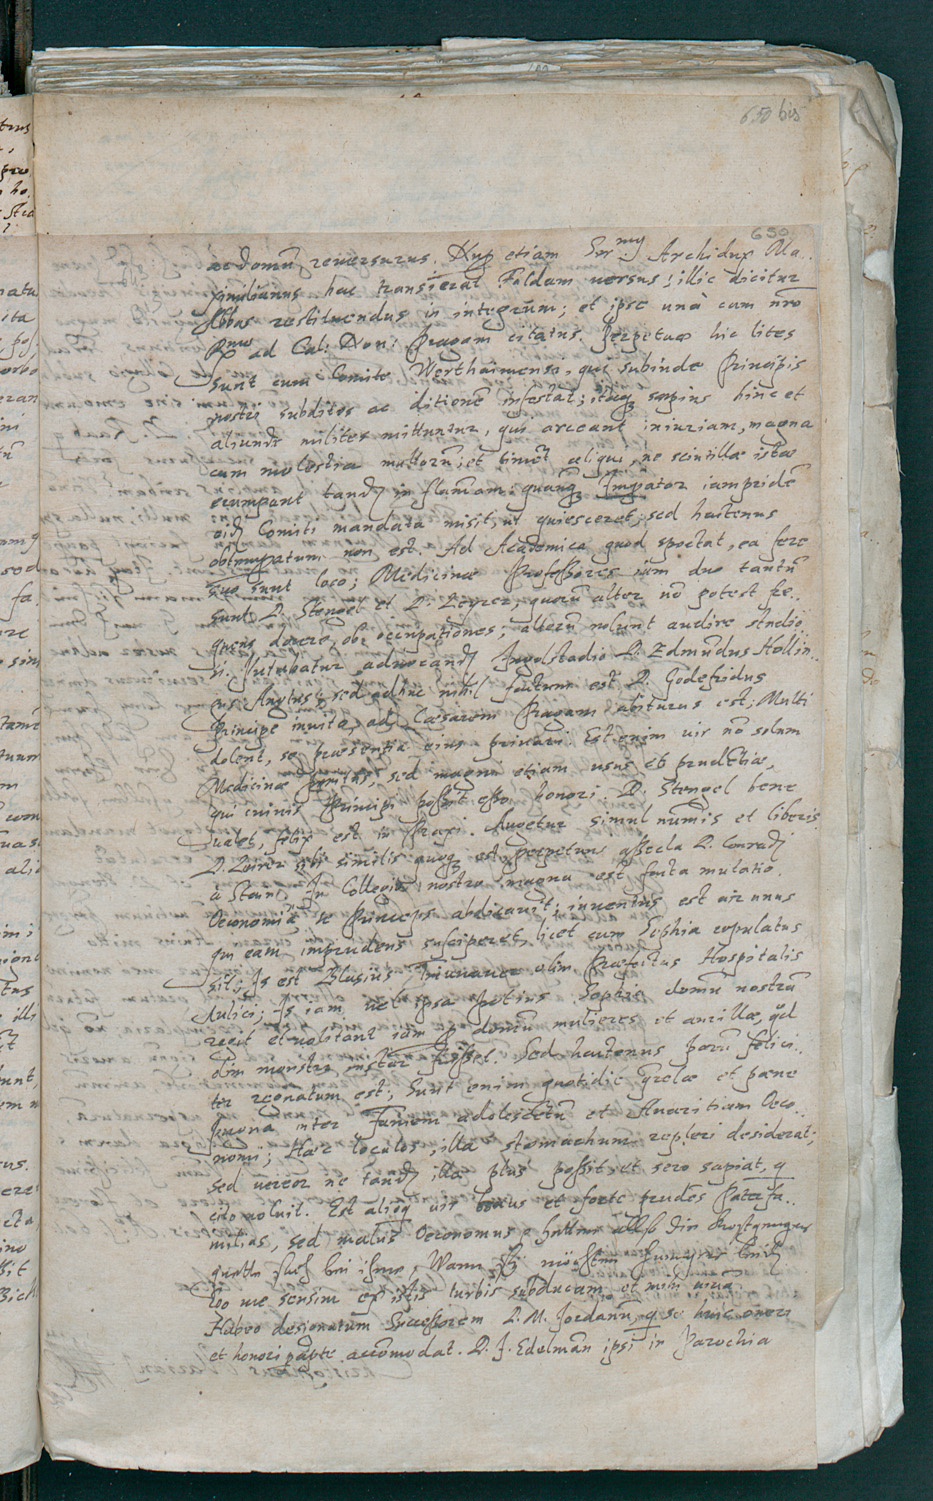 650 bis
650
ac domū reuersurus. Nup etiam Sermus Archidux Ma
ximilianus hac transierat Fuldam versus; illic dicitur
Abbas restituendus in integrum; et ipse unà cum nro
Rmo ad Cal: Nou: Pragam citatus. Perpetuae hic lites
sunt cum Comite Werthaimensi, qui subinde Principis
nostri subditos ac ditionē infestat; itaq saepius hinc et
aliunde milites mittuntur, qui arceant iniuriam, magna
cum molestia multorū; et timēt aliqui, ne scintillae istae
erumpant tandē in flam̄am: quanq̄ Imp̄ator iampridē
Comiti mandata misit, ut quiesceret; sed hactenus
obtemp̄atum non est. Ad Academica quod spectat, ea fere
suo sunt loco; Medicinae Professores iam duo tantū
sunt D. Stengel et D. Leyrer, quorū alter nō potest fre
quens docere, ob occupationes; alterū nolunt audire studio
si. Putabatur aduocandū Ingolstadio D. Edmundus Hollin
gus Anglus; sed adhuc nihil factum est. D. Godefridus
Principe inuito, ad Caesarem Pragam abiturus est; Multi
dolent, se praesentia eius priuari. Est enim uir nō solum
Medicinae peritus, sed magni etiam usus et prudētiae,
qui cuiuis Principi possit esse honori. D. Stengel bene
ualet, felix est in Praxi. Augetur simul num̄is et liberis.
D. Leirer sibi similis quoq est perpetuus assecla D. Conradi
à Stain. In Collegio nostro magna est facta mutatio.
Oeconomiā se Princeps abdicauit; inuentus est uir unus
qui eam imprudens susciperet, licet cum Sophia copulatus
sit; Is est Blasius olim Praefectus Hospitalis
Iulici; Is iam, uel ipsa potius Sophia domū nostrā
regit et uolitant iam p domum mulieres et ancillae, q̄d
olim monstri instar fuisset. Sed hactenus parū felici
ter reonatum est; Sunt enim quotidie q̄relae et paene
pugna inter Famem adolescētū et Auaritiam Oeco
nomi; Haec loculos, illa stomachum repleri desiderat;
sed uereor ne tandē illa plus possit et sero sapiat, q
cito noluit. Est alioq uir bonus et forte prudēs Paterfa
milias, sed malus Oeconomus;
Ego me sensim ex istis turbis subducam et mihi uiuā
Habeo designatum Successorem D. M. Jordanū, q se huic oneri
et honori papte accōmodat. D. J. Edelman ipsi in Parochia